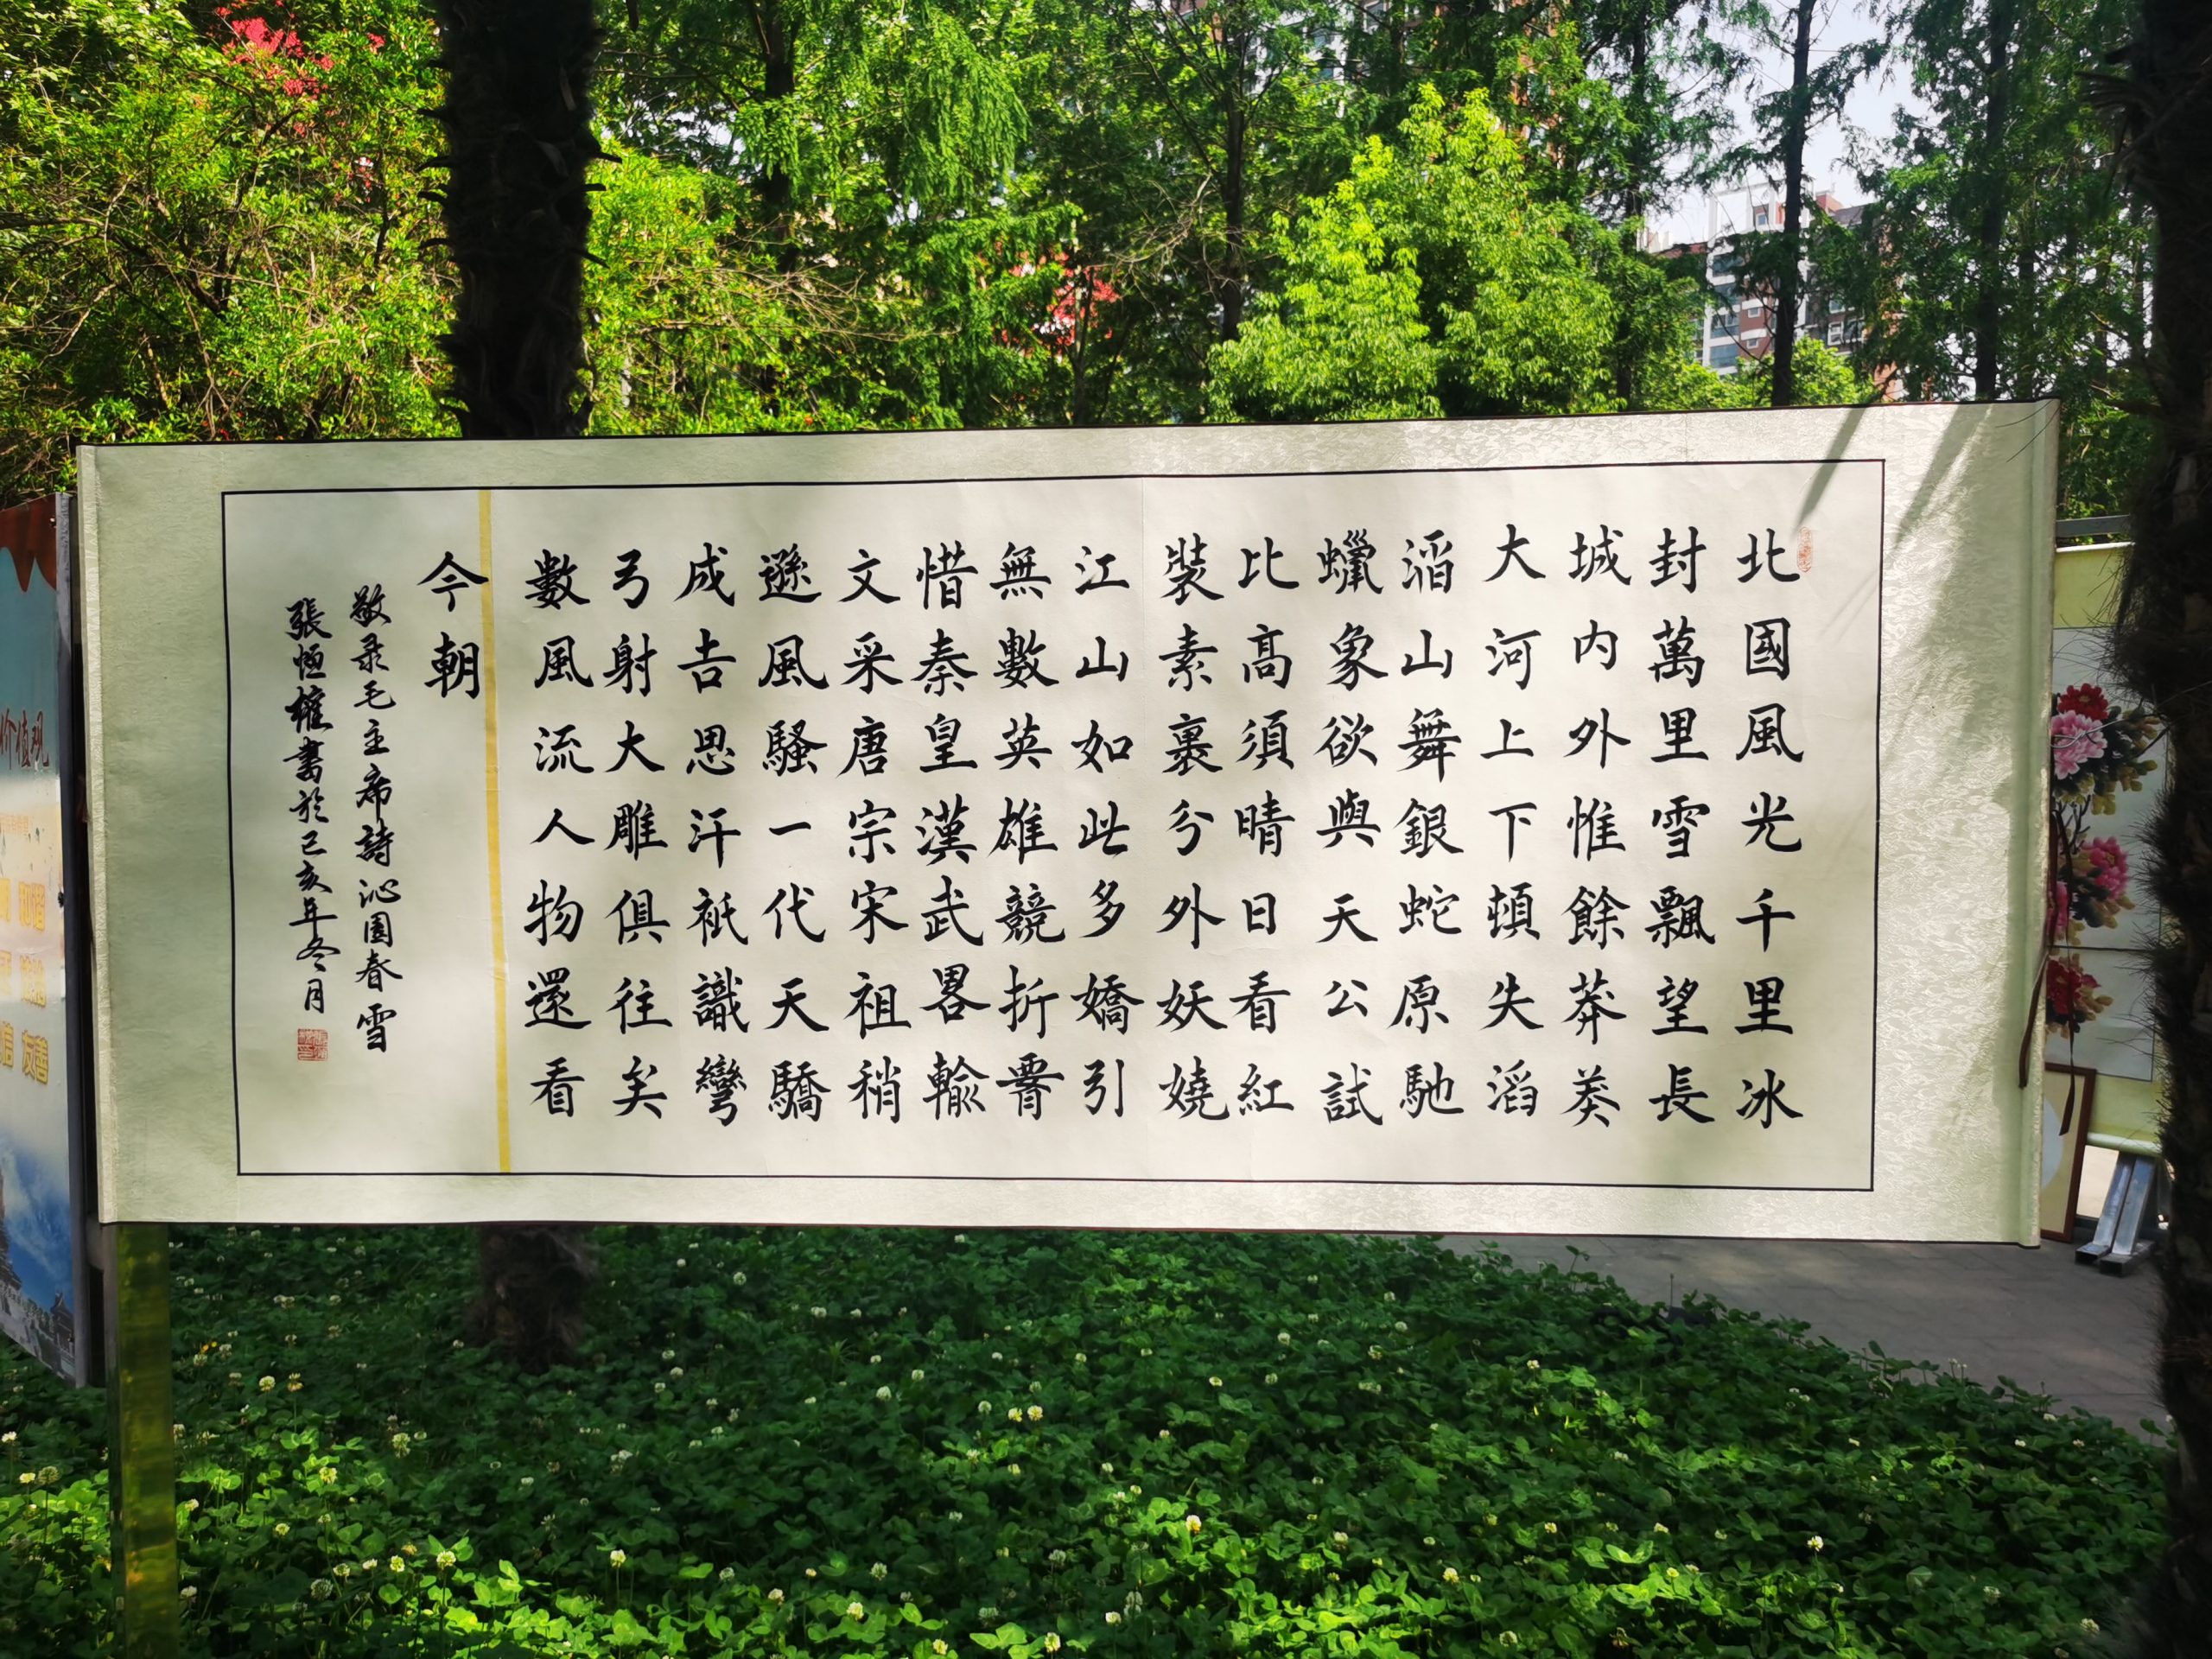 北國風光千里冰
封萬里雪飄望長
城内外惟餘莽莽
大河上下頓失滔
滔山舞銀蛇原馳
蠟象欲與天公試
比高須晴日看紅
裝素裹分外妖嬈
江山如此多嬌引
無數英雄競折腰
惜秦皇漢武畧輸
文采唐宗宋祖稍
遜風騷一代天驕
成吉思汗衹識彎
弓射大雕俱往矣
數風流人物還看
今朝
敬录毛主席詩沁園春雪
張恒權書於己亥年冬月
价值观
和谐
法治
信 友善